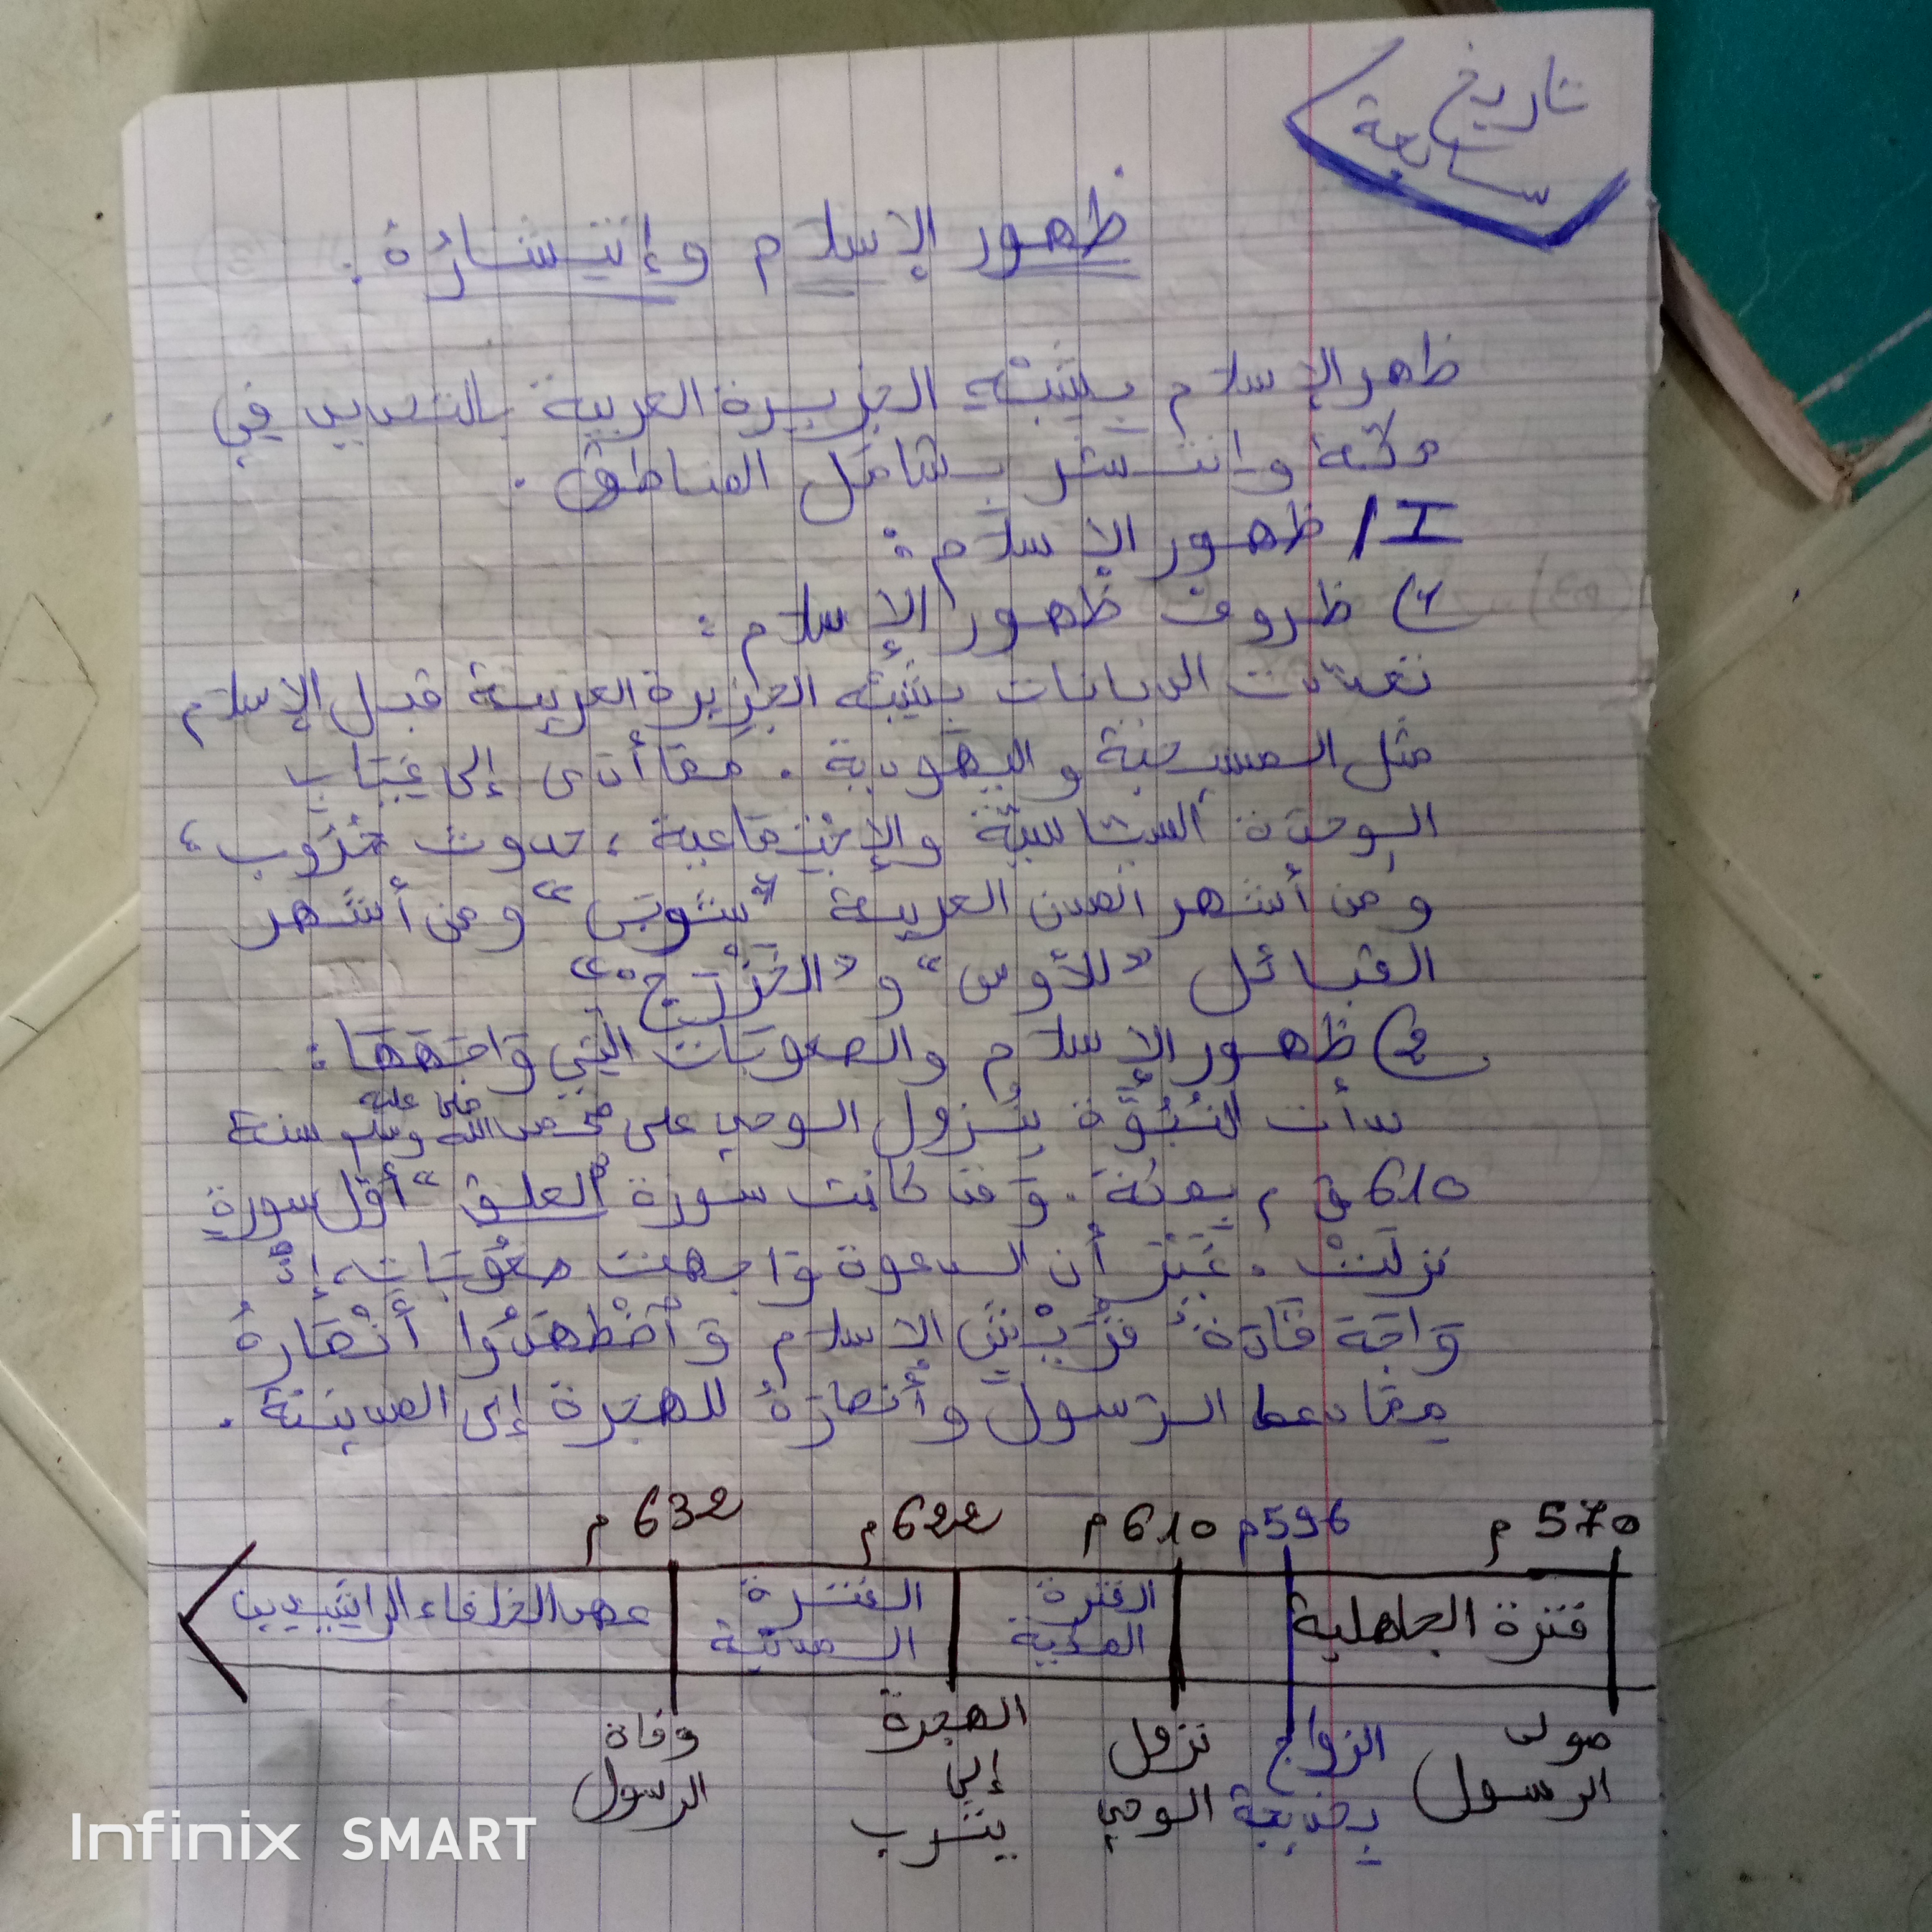 تاريخ
سابعة
ظهور الإسلام وإنتشارُهُ :
ظهر الإسلام بشبه الجزيرة العربية بالتحديد في
مكّة وانتشر بكامل المناطق .
I/ ظهور الإسلام :
1) ظروف ظهور الإسلام :
تعدّدت الديانات بشبه الجزيرة العربية قبل الإسلام
مثل المسيحية واليهودية . ممّا أدى إلى غياب
الوحدة السياسيّة والإجتماعية ، حدوث حُرُوب ،
ومن أشهر المدن العربية " " ومن أشهر
القبائل "للأوس" و "الخَزْرَج"
2) ظهور الإسلام والصعوبات التي وَاجَهَهَا :
بدأت النُبُوَّة بنُزول الوحي على محمد صلى الله عليه وسلم سنة
610 م بمكّة . وَقد كانت سورة "العلق" أوّل سورة
نزلَتْ . غَيْرَ أن الدعوة وَاجهت صعُوبَات ، إذْ
وَاجَهَ قَادَةُ قُرَيْش الإسلام وَأضْطَهَدُوا أَنْصَارهُ
ممّا دعا الرّسول وأنصارَهُ للهجرة إلى المدينة .
570 م 596م 610 م 622م 632 م
فترة الجاهلية الفترة المكية الفترة المدنيّة عهد الخلفاء الراشيدين
مولد الرسول
الزواج بخديجة
نزول الوحي
الهجرة إلى يثرب
وفاة الرسول
Infinix SMART